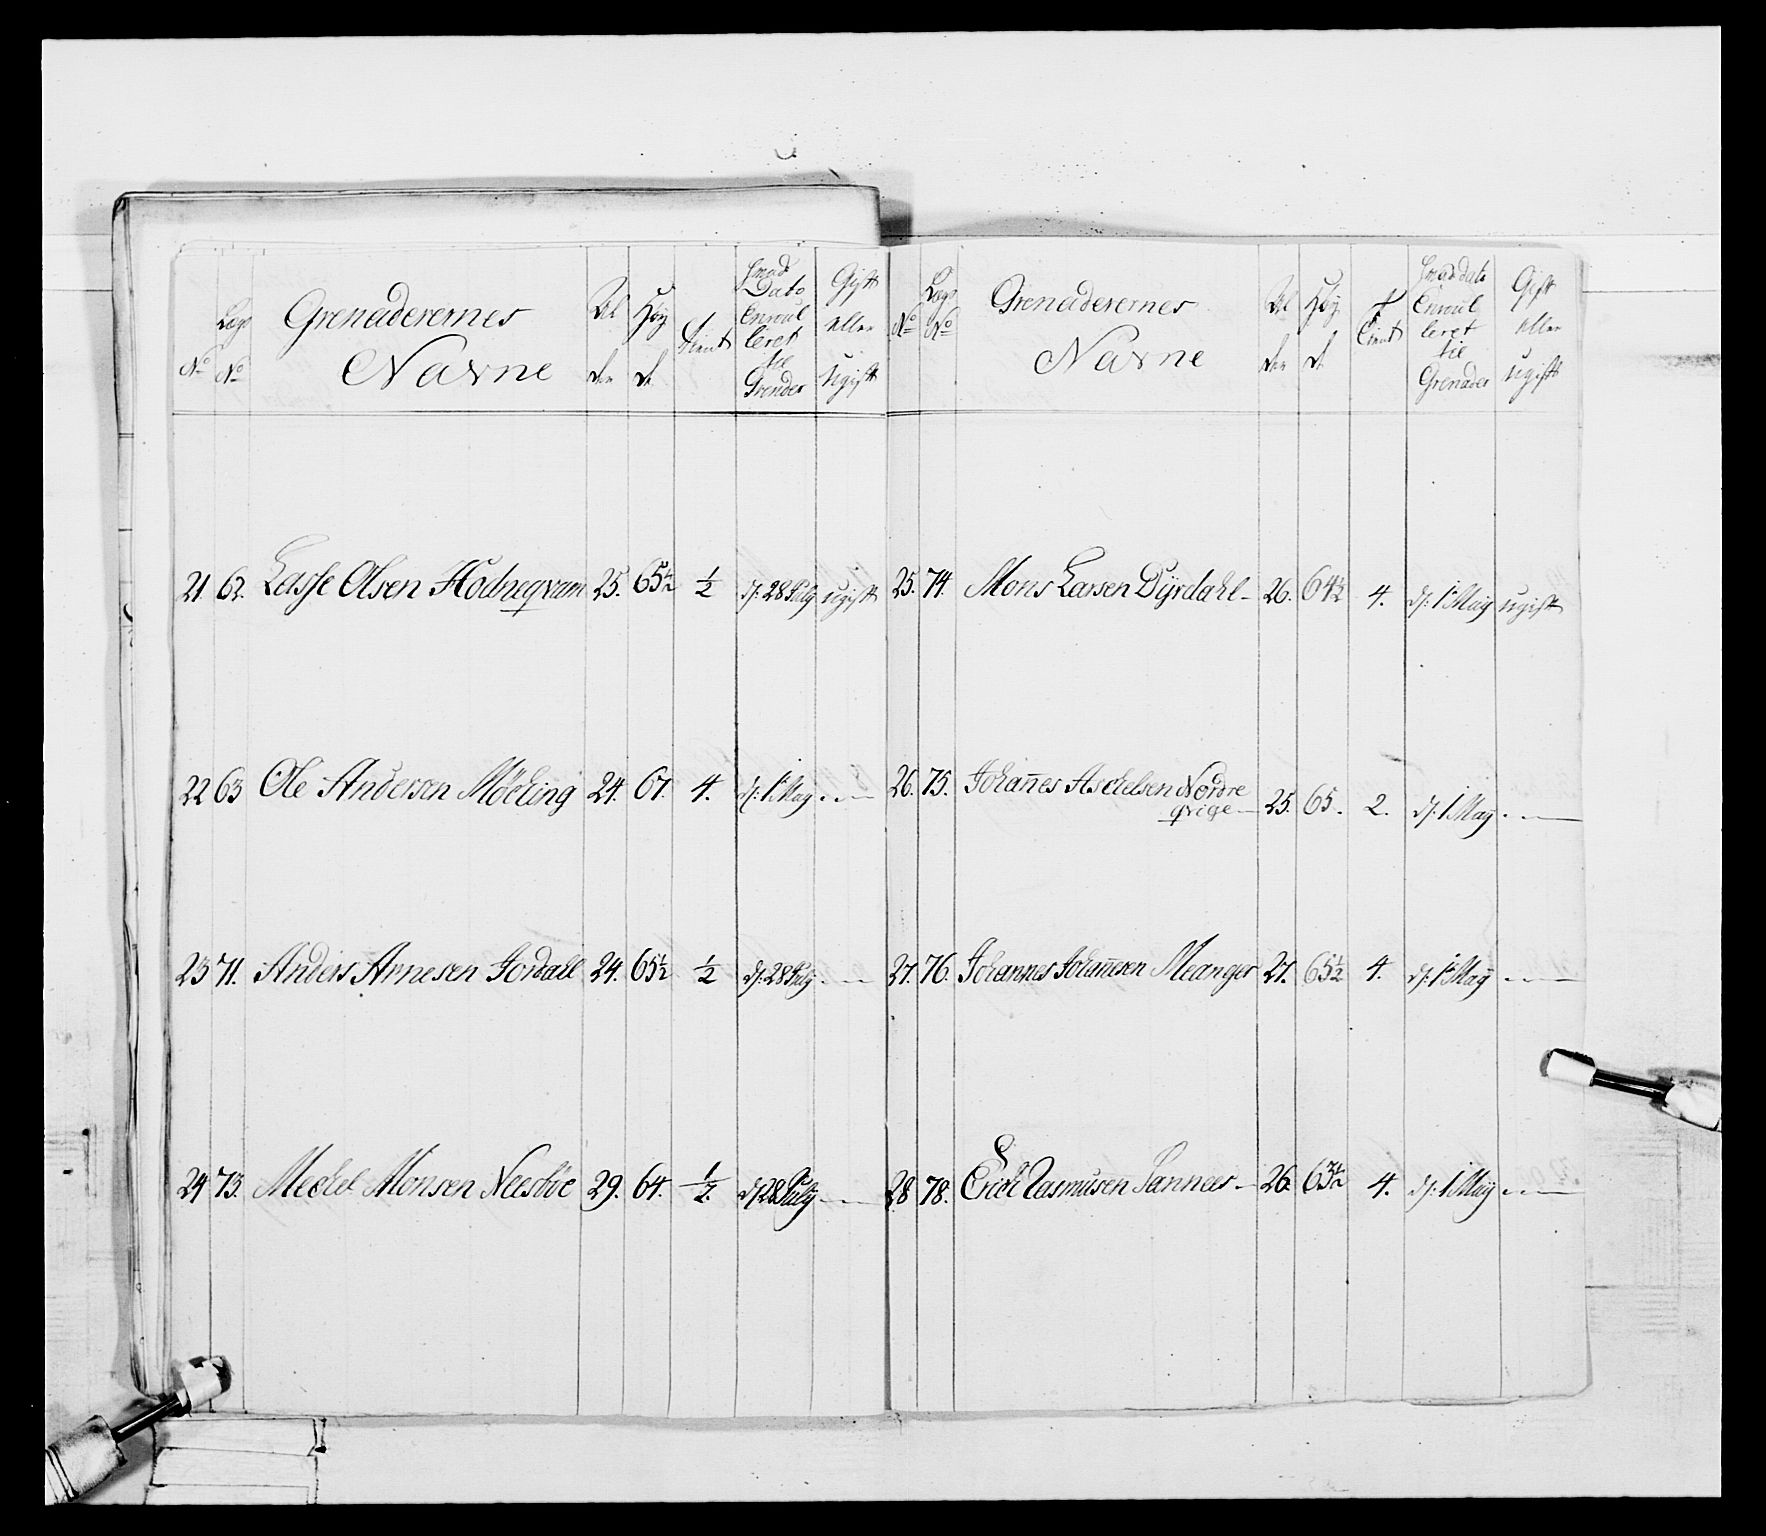 No
Lægs No
Grenaderernes Navne
Al der
Høy de
Tient
Hvad Dato Enroul leret til Grenader
Gift eller Ugift
21. 62. Lasse Olsen Hodneqvam 25. 65½ ½ d: 28 July ugift
22 63 Ole Andersen Møcling 24. 67. 4. d: 1 May . . —
23 71. Anders Arnesen Jordall 24. 65½ ½ d: 28 July . . —
24 73. Meckel Monsen Neesbøe 29. 64. ½. d: 28 July . . —
No
Lægs No
Grenaderernes Navne
Al der
Høy de
Tient
Hvad dato Enroul leret til Grenader
Gift eller Ugift
25. 74. Mons Larsen Dyrdahl - 26. 64½ 4. d: 1 May ugift
26. 75. Johanes Aschelsen Nordre
qvige — 25. 65. 2. d: 1 May . . —
27. 76. Johannes Johanesen Meanger 27. 65½ 4. d: 1 May . . —
28 78. Erich Rasmusen Sannes - 26. 63½ 4. d: 1 May . . —